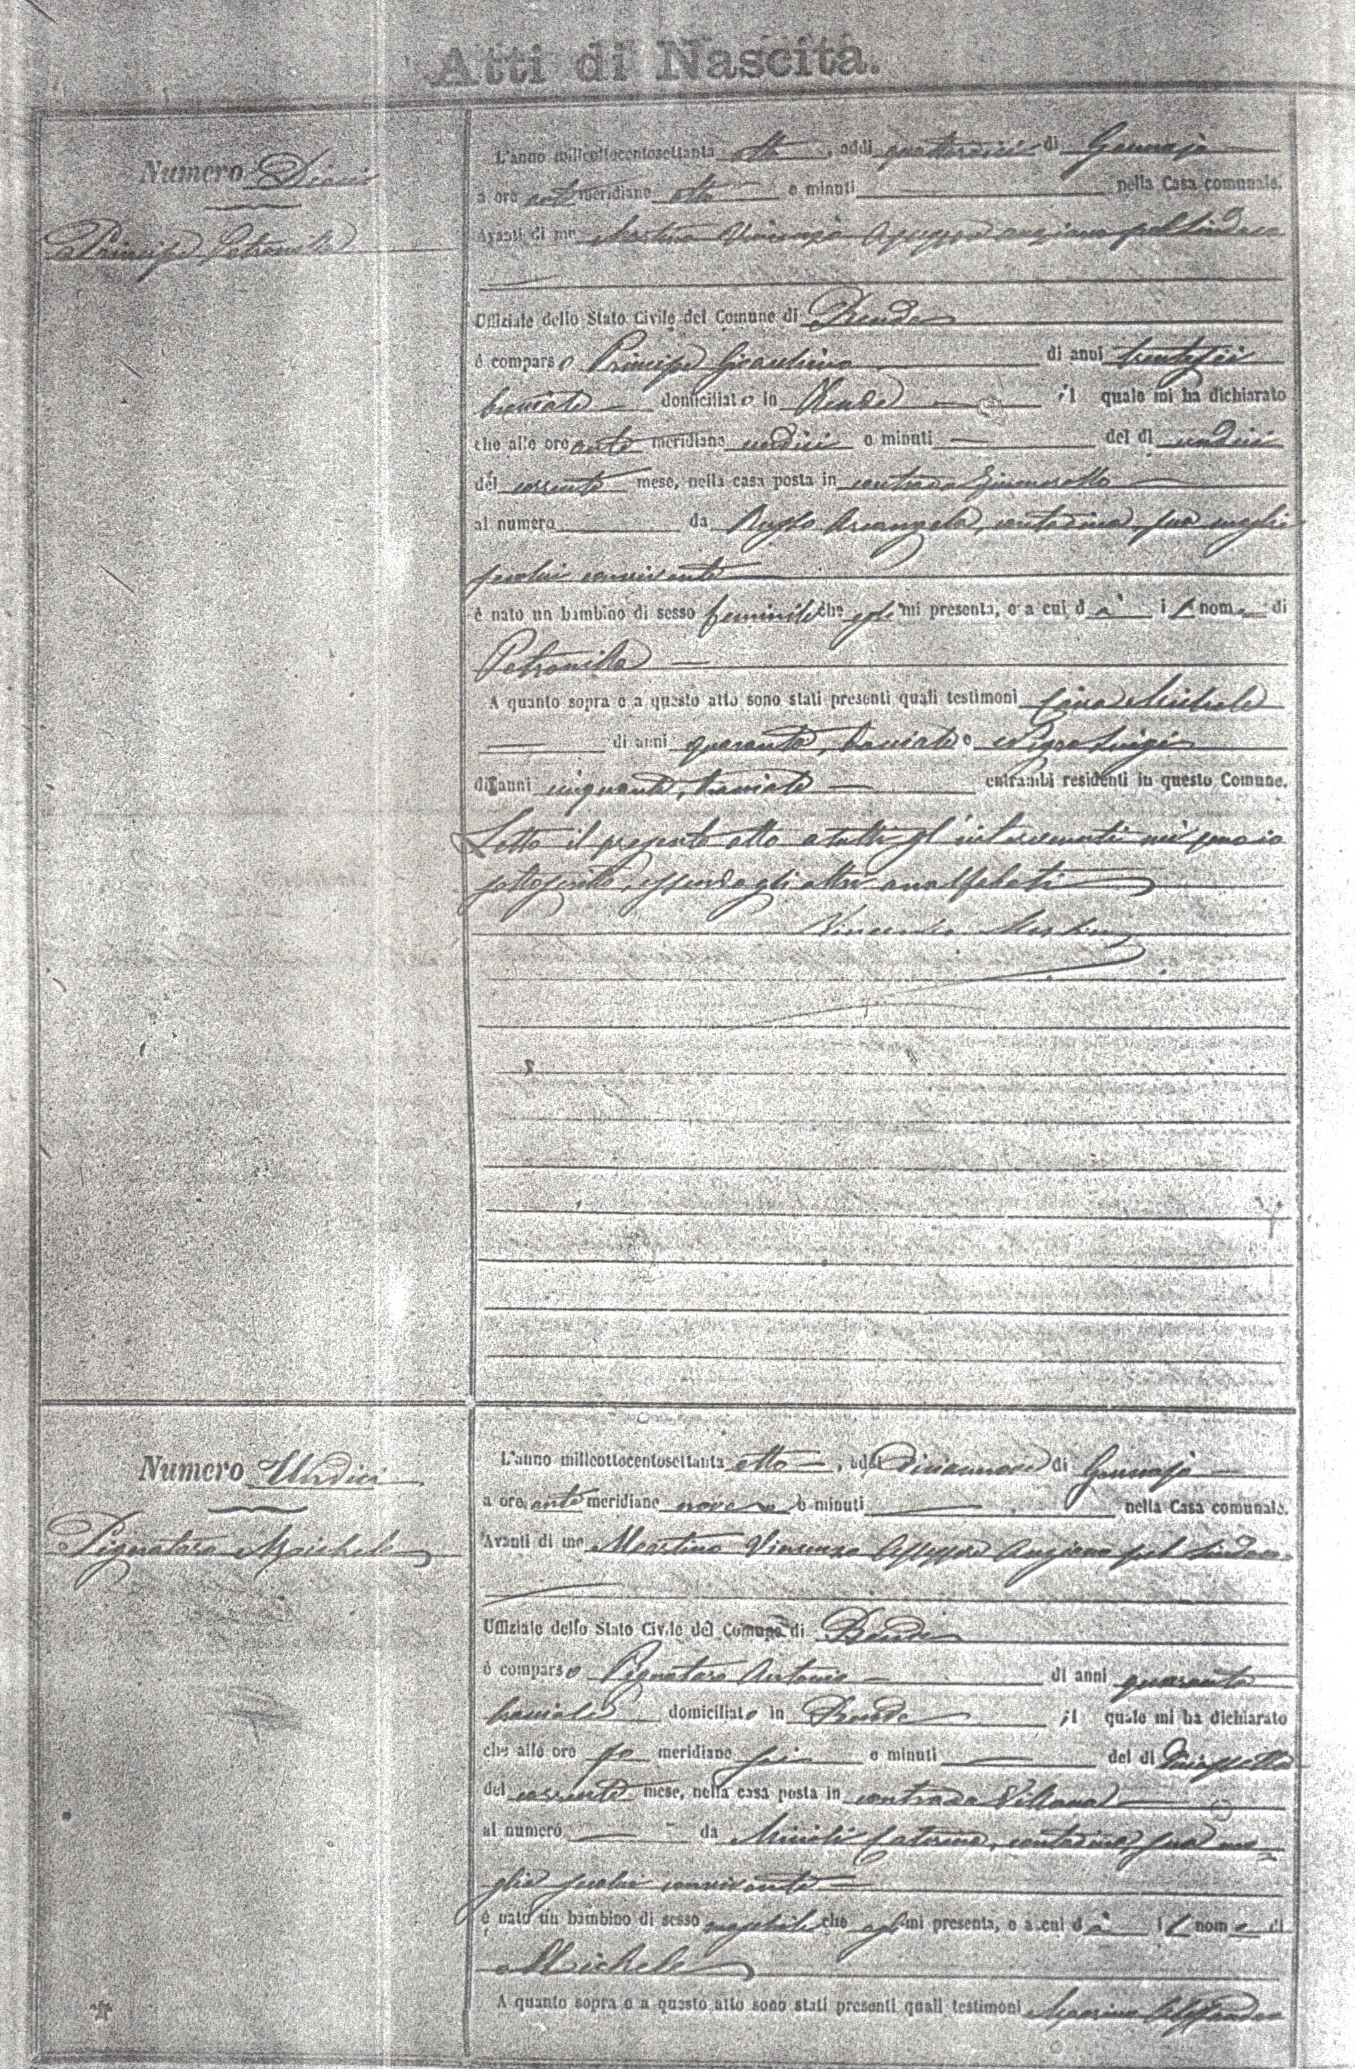 Atti di Nascita.
Numero Dieci
Principe Petronilla
L'anno millottocentosettanta otto, addì quattordici di Gennajo
a ore ante meridiane otto e minuti nella Casa comunale.
Avanti di me Martino Vincenzo Assessore anziano pel Sindaco
Uffiziale dello Stato Civile del Comune di Rende
è comparso Principe di anni trentasei
bracciale domiciliato in Rende il quale mi ha dichiarato
che alle ore ante meridiane undici e minuti del dì undici
del corrente mese, nella casa posta in contrada
al numero da Russo Arcangela, contadina, sua moglie
seolui convivente
è nato un bambino di sesso feminile che egli mi presenta, e a cui dà il nome di
Petronilla
A quanto sopra e a questo atto sono stati presenti quali testimoni Michele
di anni quaranta, bracciale e Luigi
di anni cinquanta, bracciale entrambi residenti in questo Comune.
Letto il presente atto a tutti gl'intervenuti mi sono io
sottoscritto, essendo gli altri analfabeti
Vincenzo Martino
Numero Undici
Pignataro Michele
L'anno millottocentosettanta otto, addì Diciannove di Gennajo
a ore ante meridiane nove e minuti nella Casa comunale.
Avanti di me Martino Vincenzo Assessore Anziano pel Sindaco
Uffiziale dello Stato Civile del Comune di Rende
è comparso Pignataro Antonio di anni quaranta
bracciale domiciliato in Rende il quale mi ha dichiarato
che alle ore po meridiane sei e minuti del dì diciassette
del corrente mese, nella casa posta in contrada
al numero da Caterina, contadina, sua mo=
glie seolui convivente
è nato un bambino di sesso maschile che egli mi presenta, e a cui dà il nome di
Michele
A quanto sopra e a questo atto sono stati presenti quali testimoni